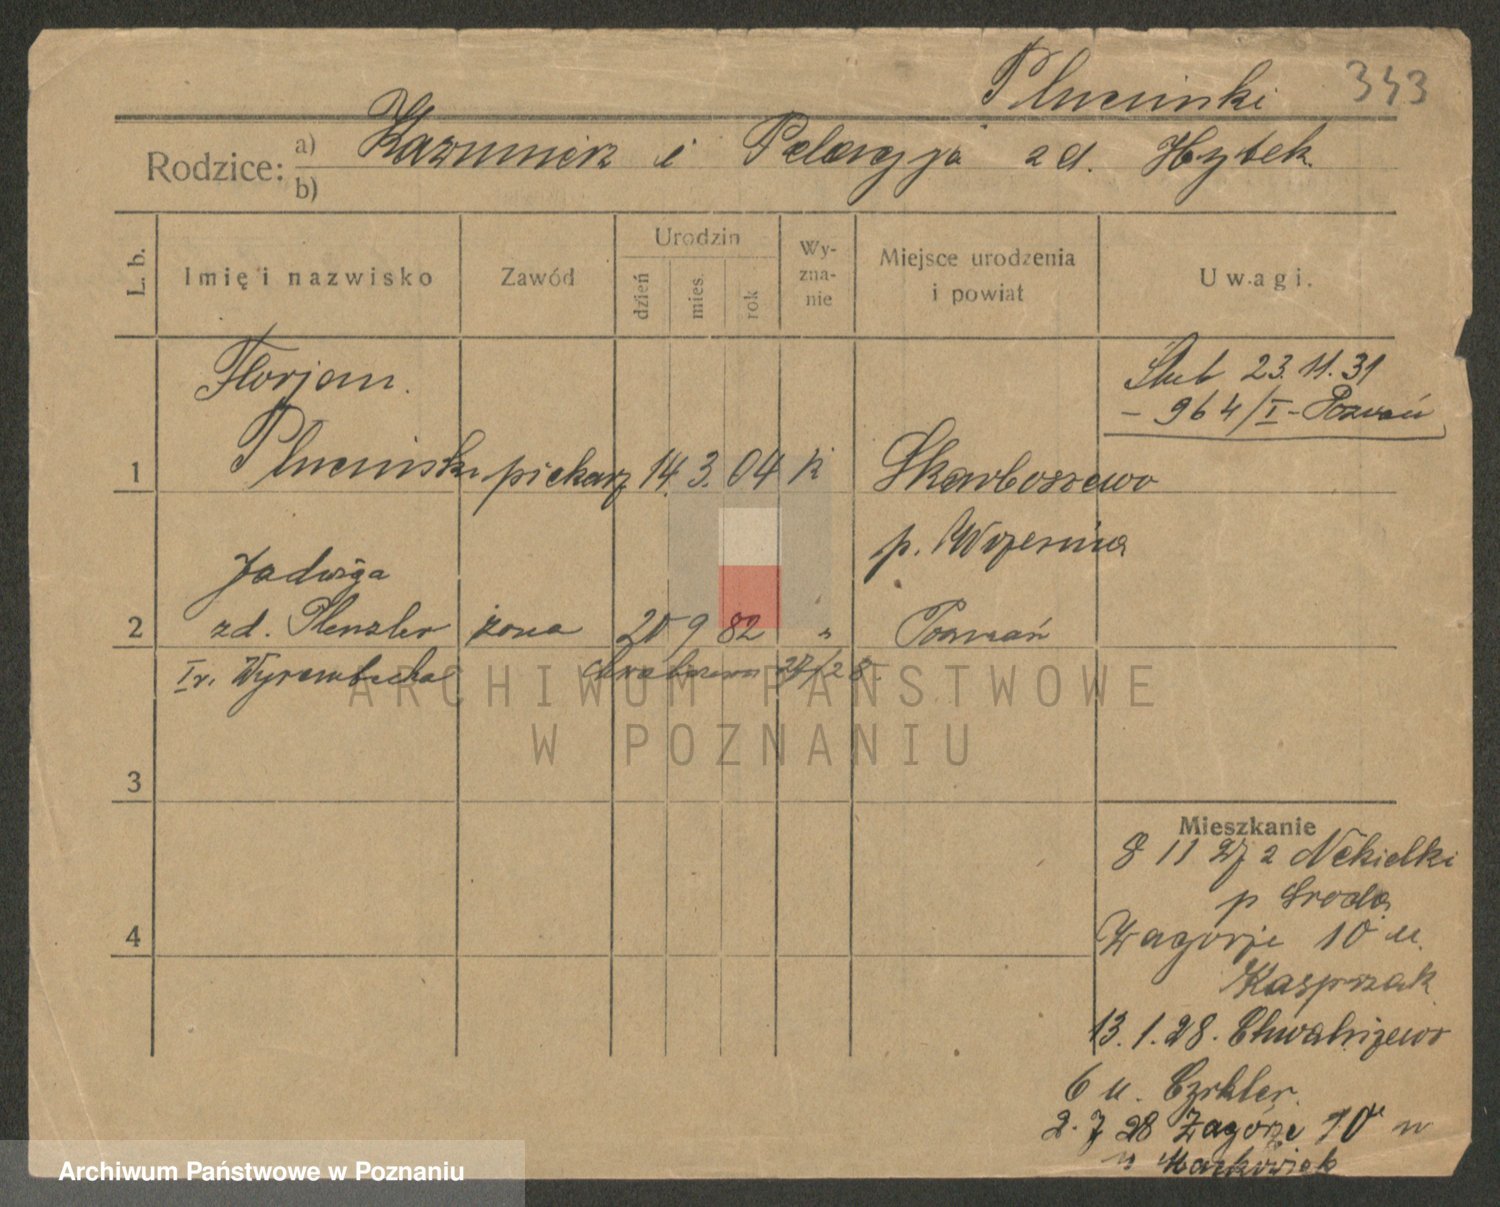 Plucinski 343
Rodzice: a) Kazimierz i Pelagja zd. Hytek.
b)
L. b. Imię i nazwisko Zawód Urodzin dzień mies. rok Wy-zna-nie Miejsce urodzenia i powiat Uwagi.
Florjan. Ślub 23.11.31
– 964/I – Poznań
1 Pluciński piekarz 14. 3. 04 k Skarboszewo
p. Września
Jadwiga
2 zd. Plenzler żona 20 9 82 „ Poznań
I v. Wyrembecka 28.
ARCHIWUM PAŃSTWOWE
W POZNANIU
3
Mieszkanie
8 11 27 z Nekielki
p Środa
4 Zagórje 10 u.
Kasprzak
13.1.28. Chwaliszewo
6 u.
2. 7 28 Zagórze 10 u
Archiwum Państwowe w Poznaniu